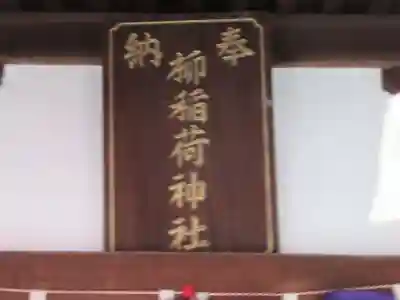 奉納
柳稲荷神社